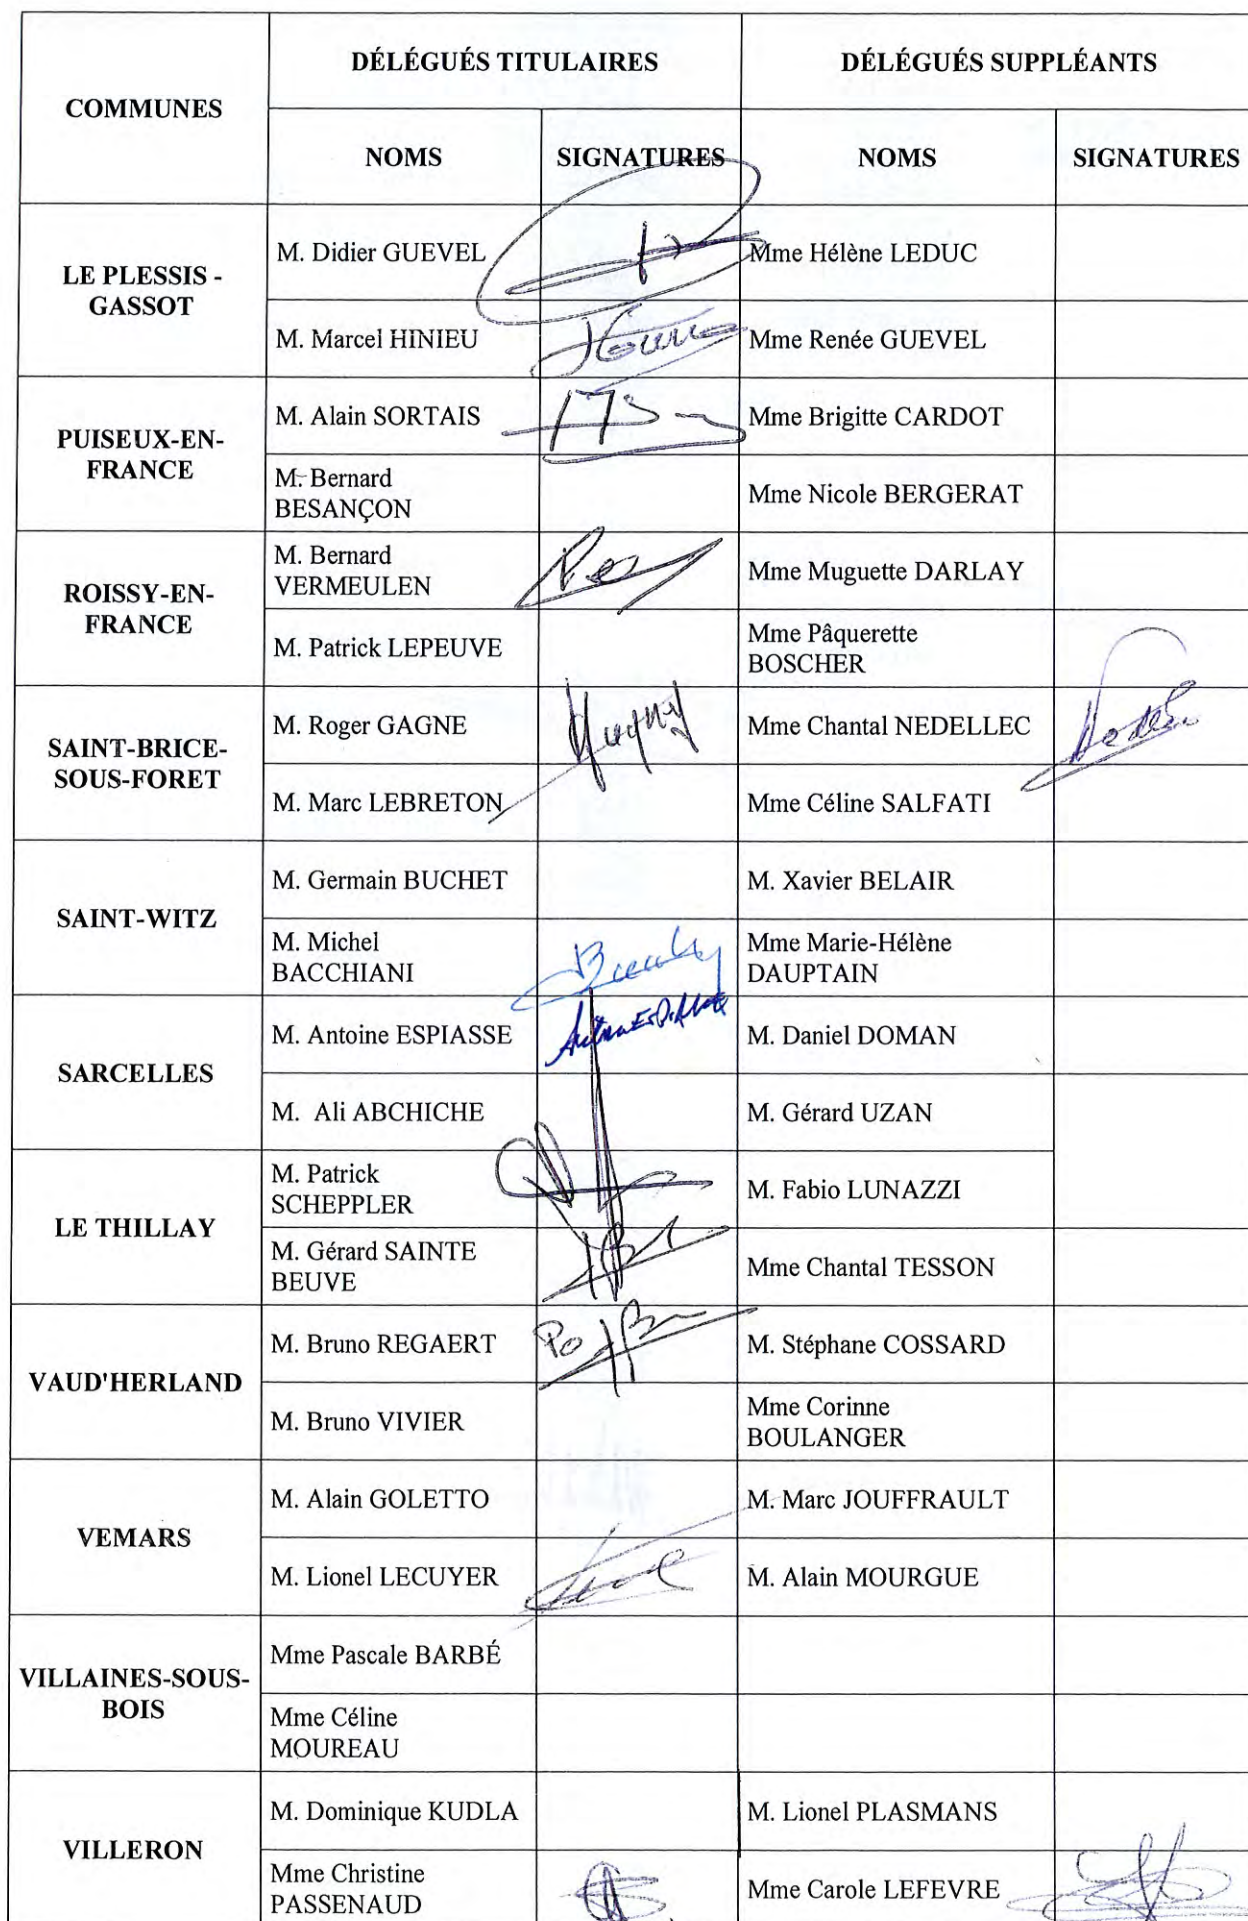 COMMUNES
DÉLÉGUÉS TITULAIRES
DÉLÉGUÉS SUPPLÉANTS
NOMS
SIGNATURES
NOMS
SIGNATURES
LE PLESSIS -
GASSOT
M. Didier GUEVEL
Mme Hélène LEDUC
M. Marcel HINIEU
Mme Renée GUEVEL
PUISEUX-EN-
FRANCE
M. Alain SORTAIS
Mme Brigitte CARDOT
M. Bernard
BESANÇON
Mme Nicole BERGERAT
ROISSY-EN-
FRANCE
M. Bernard
VERMEULEN
Mme Muguette DARLAY
M. Patrick LEPEUVE
Mme Pâquerette
BOSCHER
SAINT-BRICE-
SOUS-FORET
M. Roger GAGNE
Mme Chantal NEDELLEC
M. Marc LEBRETON
Mme Céline SALFATI
SAINT-WITZ
M. Germain BUCHET
M. Xavier BELAIR
M. Michel
BACCHIANI
Mme Marie-Hélène
DAUPTAIN
SARCELLES
M. Antoine ESPIASSE
M. Daniel DOMAN
M. Ali ABCHICHE
M. Gérard UZAN
LE THILLAY
M. Patrick
SCHEPPLER
M. Fabio LUNAZZI
M. Gérard SAINTE
BEUVE
Mme Chantal TESSON
VAUD'HERLAND
M. Bruno REGAERT
Po
M. Stéphane COSSARD
M. Bruno VIVIER
Mme Corinne
BOULANGER
VEMARS
M. Alain GOLETTO
M. Marc JOUFFRAULT
M. Lionel LECUYER
M. Alain MOURGUE
VILLAINES-SOUS-
BOIS
Mme Pascale BARBÉ
Mme Céline
MOUREAU
VILLERON
M. Dominique KUDLA
M. Lionel PLASMANS
Mme Christine
PASSENAUD
Mme Carole LEFEVRE